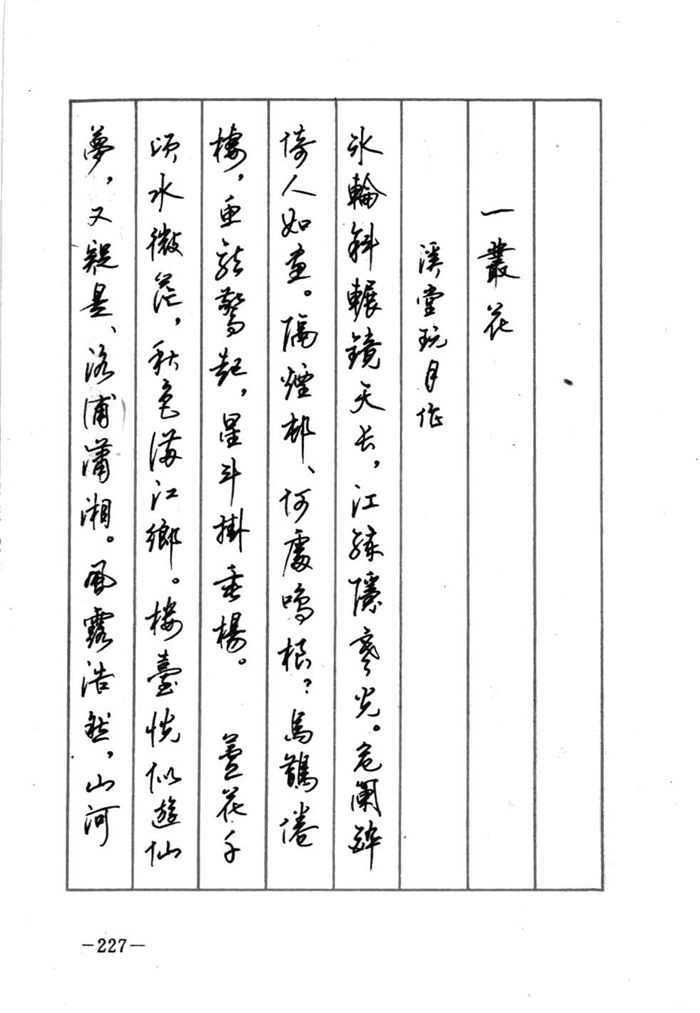 一叢花
溪堂玩月作
冰輪斜輾鏡天长,江練隱寒光。危闌醉
倚人如畫。隔煙邨、何處鳴桹?烏鵲倦
棲,魚龍驚起,星斗掛垂楊。 蘆花千
頃水微茫,秋色满江鄉。樓臺恍似遊仙
夢,又疑是、洛浦瀟湘。風露浩然,山河
—227—